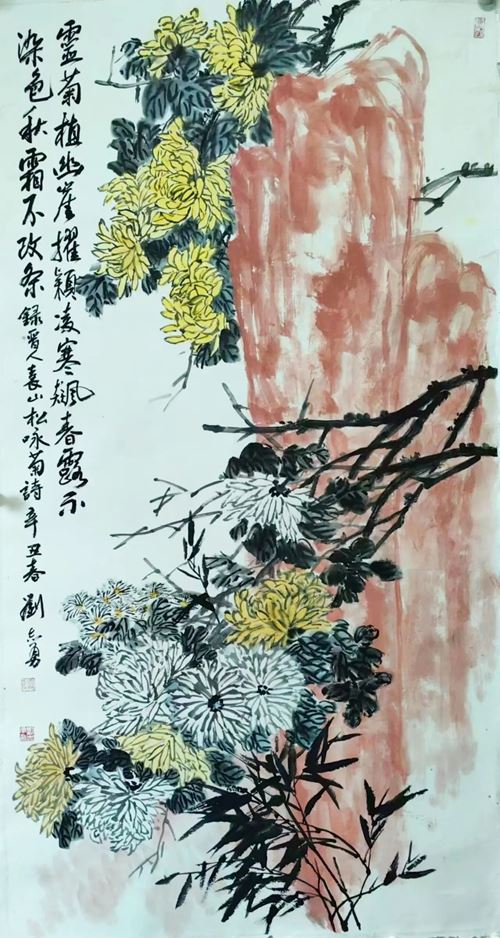 靈菊植幽崖擢穎凌寒飆春露不
染色秋霜不改条錄晉人袁山松咏菊詩辛丑春劉志勇